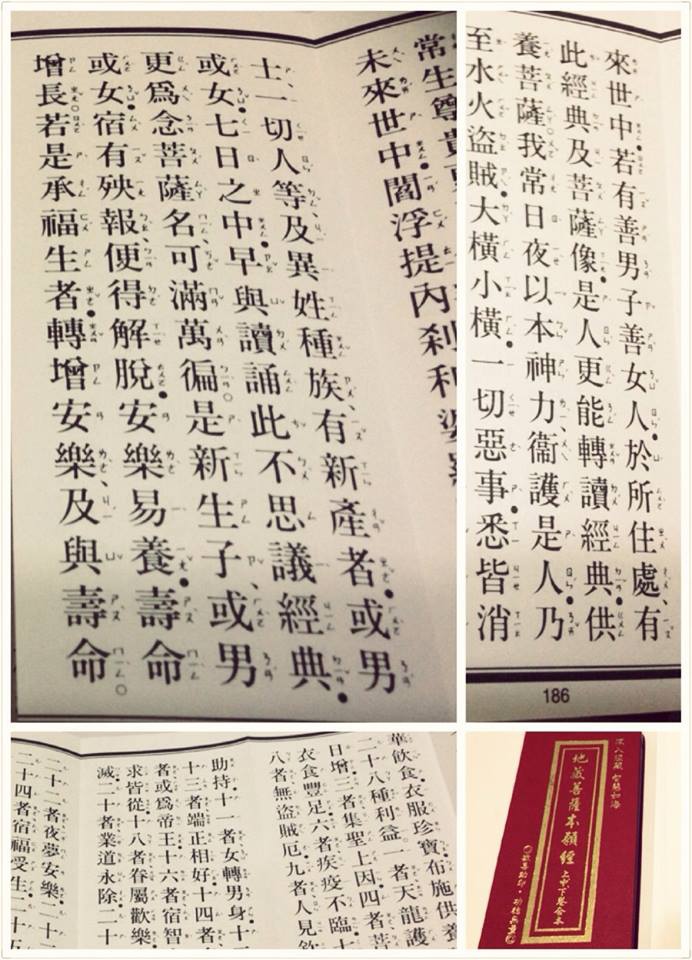 常生尊貴
未來世中閻浮提內剎利婆
士、一切人等、及異姓種族、有新產者、或男
或女、七日之中、早與讀誦此不思議經典、
更爲念菩薩名、可滿萬徧。是新生子、或男
或女、宿有殃報、便得解脫、安樂易養、壽命
增長。若是承福生者、轉增安樂、及與壽命。
來世中、若有善男子善女人、於所住處、有
此經典及菩薩像、是人更能轉讀經典、供
養菩薩、我常日夜以本神力、衞護是人、乃
至水火盜賊、大橫小橫、一切惡事、悉皆消
186
華飲食、衣服珍寶、布施供養
二十八種利益、一者天龍護
日增、三者集聖上因、四者
衣食豐足、六者疾疫不臨、
八者無盜賊厄、九者人見欽
助持、十一者女轉男身、十
十三者端正相好、十四者
者或爲帝王、十六者宿智
求皆從、十八者眷屬歡樂、
滅、二十者業道永除、二十
二十二者夜夢安樂、二十
二十四者宿福受生、二十五
深入經藏 智慧如海
地藏菩薩本願經 上中下卷合本
歡喜助印・功德無量